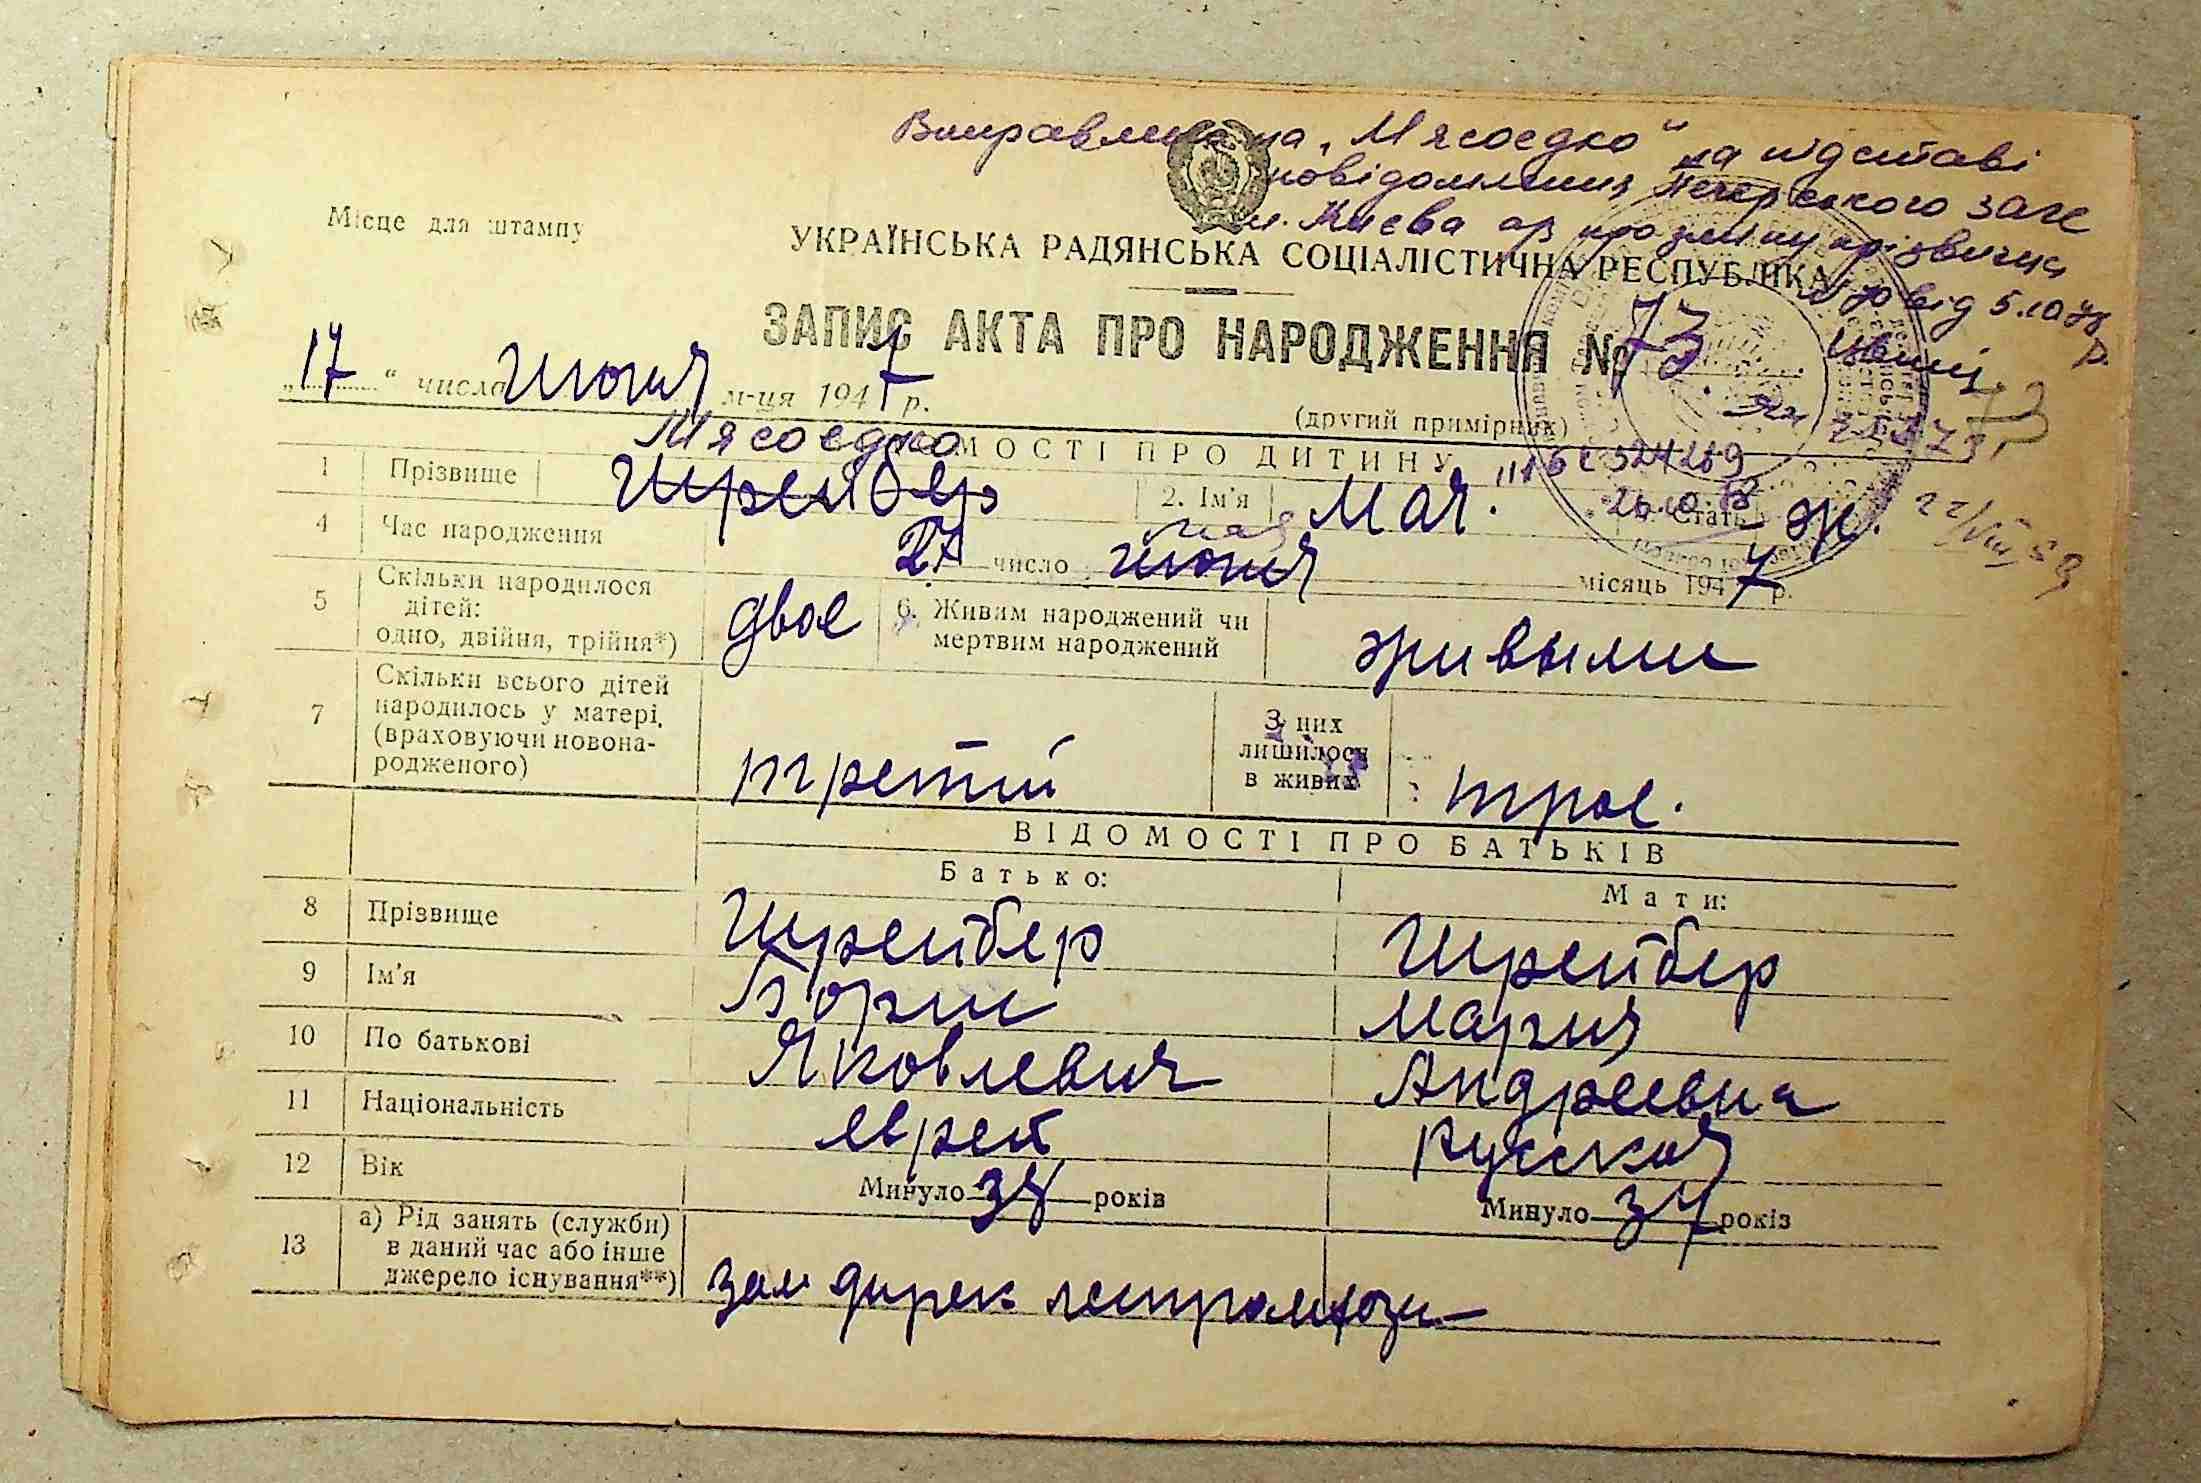 Виправлено на „Мясоєдко“ на підставі
повідомлення Печерського загс
м. Києва аз про зміну прізвища
від 5.10.78
р.
Місце для штампу
УКРАЇНСЬКА РАДЯНСЬКА СОЦІАЛІСТИЧНА РЕСПУБЛІКА
ЗАПИС АКТА ПРО НАРОДЖЕННЯ № 73
„17“ числа июня м-ця 1947 р.
(другий примірник)
73
Мясоєдко
ВІДОМОСТІ ПРО ДИТИНУ
524269
1 Прізвище Шрейбер 2. Ім'я Мая. Стать ж.
26.10.78
22/VIII 89
мая
4 Час народження 27 число июня місяць 1947 р.
5 Скільки народилося
дітей:
одно, двійня, трійня*) двое 6. Живим народжений чи
мертвим народжений живыми
7 Скільки всього дітей
народилось у матері,
(враховуючи новона-
родженого) третий З них
лишилося
в живих трое.
ВІДОМОСТІ ПРО БАТЬКІВ
Батько: Мати:
8 Прізвище Шрейбер Шрейбер
9 Ім'я Борис Мария
10 По батькові Яковлевич Андреевна
11 Національність еврей русская
12 Вік Минуло 38 років Минуло 37 років
13 а) Рід занять (служби)
в даний час або інше
джерело існування**) зам дирек